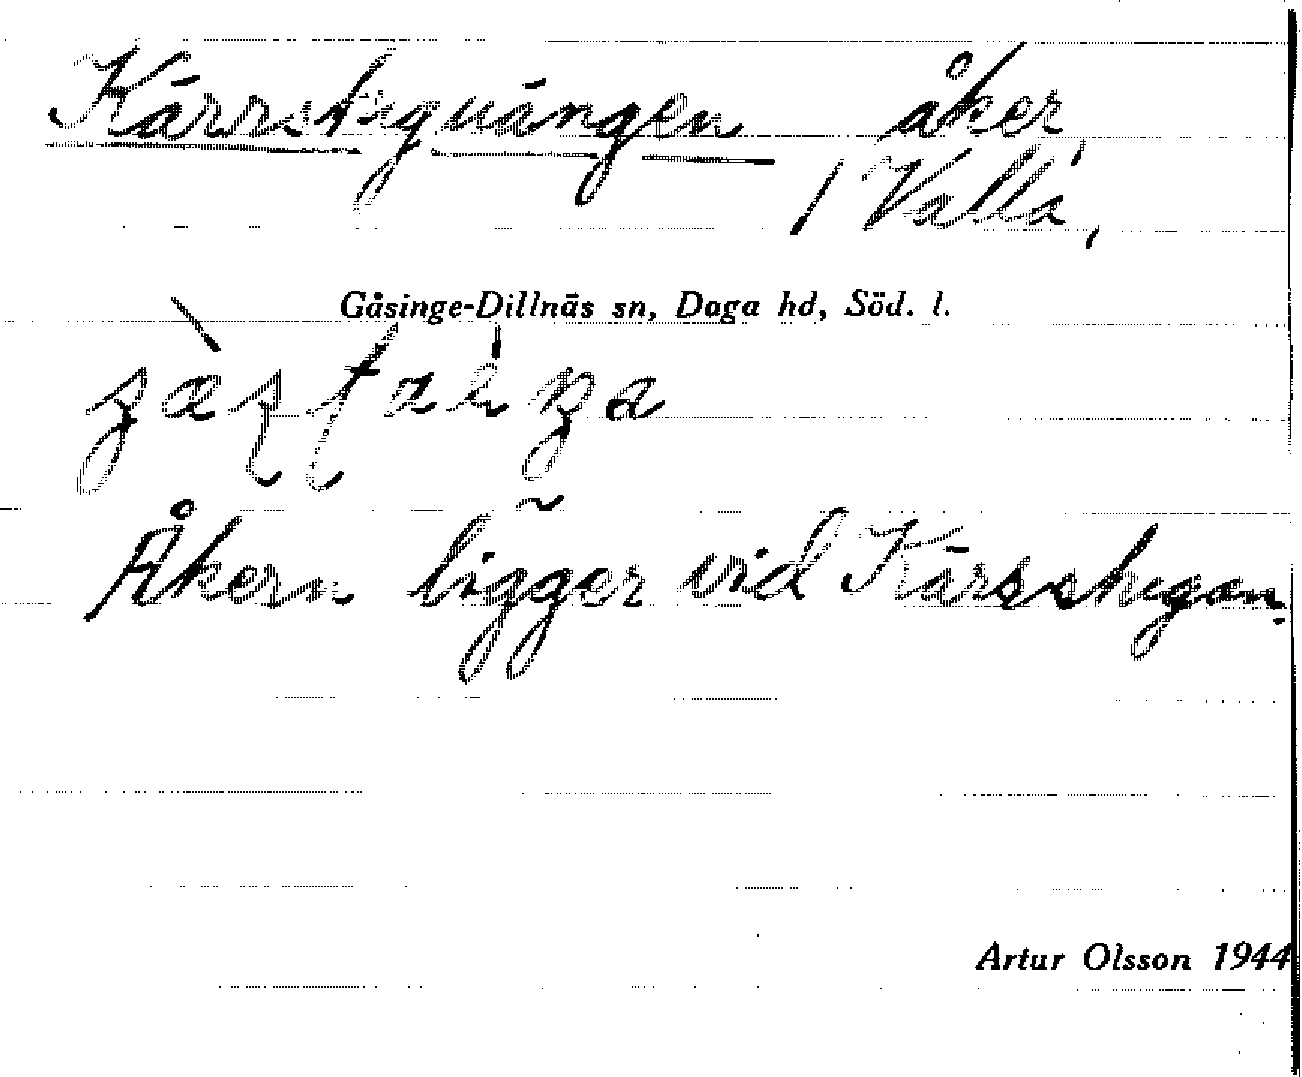 Kärrstuguängen åker
/ Valla,
Gåsinge-Dillnäs sn, Daga hd, Söd. l.
Åkern ligger vid Kärrstugan.
Artur Olsson 1944